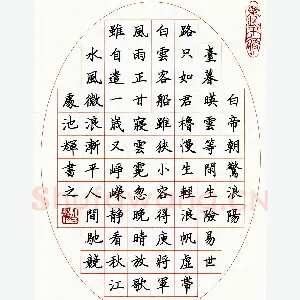 白帝朝驚浪陽
臺暮暎雲等閒生險易世
路只如君櫓慢生輕浪帆虛帶
白雲客船雖狹小容得庾將軍
風雨正甘寢雲霓忽晚晴放歌
雖自遣一歲又崢嶸靜看秋江
水風微浪漸平人間馳競
處池輝書之